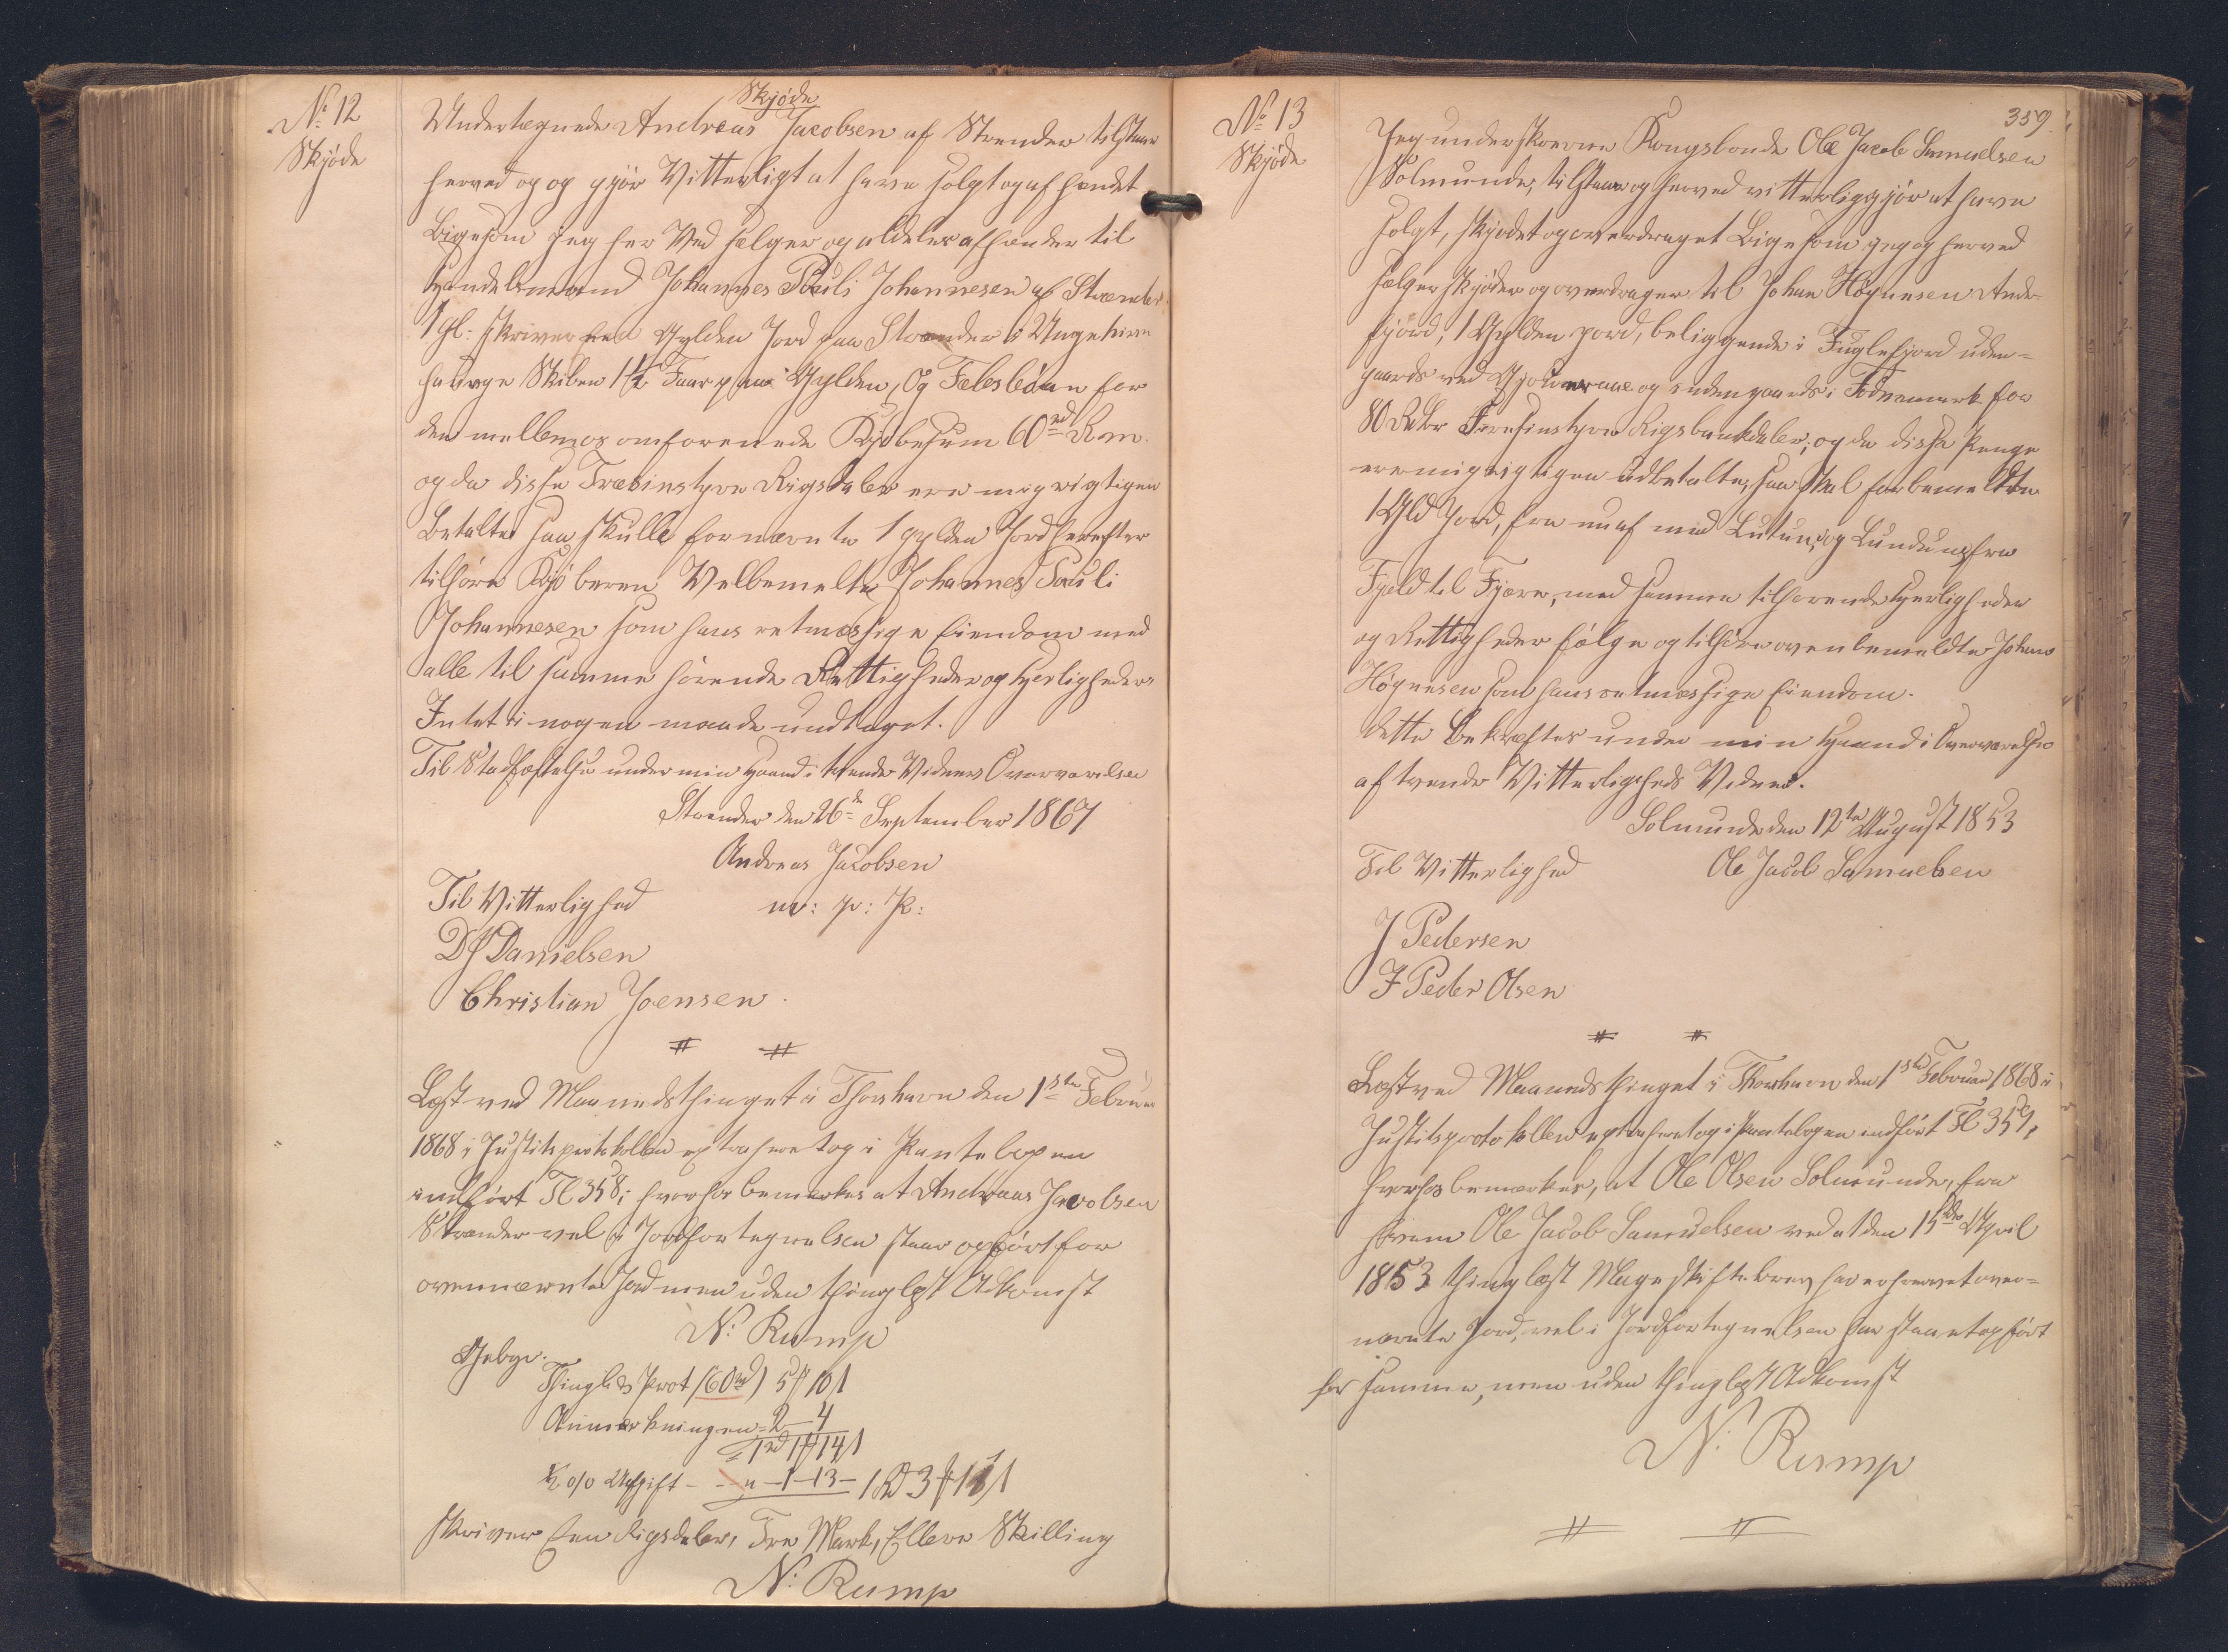 No 12
Skjöde
Skjöde
Undertegnede Andreas Jacobsen af Strender tilstaar
herved og og gjör Vitterligt at have solgt og afhændet
Ligesom jeg her Ved sælger og aldeles afhænder til
Handelsmand Johannes Pauli Johannesen af Strænder
1 gl: skriver een Gylden Jord paa Strænder i
hauge Skiben 1½ Faar paa Gylden, Og for
den mellem os omforenede Kjöbesum 60 rd R.m.
og da disse Tresinstyve Rigsdaler ere mig rigtigen
Betalte saa skulle fornævnte 1 gylden Jord herefter
tilhöre Kjöberen Velbemelte Johannes Pauli
Johannesen som hans retmæssige Eiendom med
alle til samme hörende Rettigheder og Herligheder
Intet i nogen maade undtaget.
Til Stadfæstelse under min Haand i tvende Vidners Overværelse
Strender den 26de September 1867
Andreas Jacobsen
Til Vitterlighed m: p: P:
DJ Danielsen
Christian Joensen.
Læst ved Maanedsthinget i Thorshavn den 1ste Februar
1868 i Justitsprotokollen extraheret og i Pantebogen
indfört Fl 358; hvorhos bemærkes at Andreas Jacobsen
Strænder vel i Jordfortegnelsen staar opfört for
ovennævnte Jord men uden thinglæst Adkomst
N. Rump
Gebyr.
Thingl. & Prot (60 rd) 5 # 10 ß
Anmærkningen = 2 – 4
= 1 rd 1 # 14 ß
½ o/o Afgift – – „ – 1 – 13 – 1 Rd 3 # 11 ß
skriver Een Rigsdaler, Tre Mark, Elleve Skilling
N. Rump
359.
No 13
Skjöde
Jeg underskrevne Kongsbonde Ole Jacob Samuelsen
Solmunde, tilstaar og herved vitterliggjör at have
solgt, skjödet og overdraget Ligesom jeg og herved
sælger skjöder og overdrager til Johan Högnesen Ander-
fjord, 1 Gylden jord, beliggende i Fuglefjord uden-
gaards ved og indengaards i for
80 Rbdr Firesinstyve Rigsbankdaler; og da disse Penge
ere mig rigtigen udbetalte, saa skal forbemeldte
1 Gld Jord, fra nu af med Lutum og Lundum fra
Fjeld til Fjære, med samme tilhörende Herligheder
og Rettigheder fölge og tilhöre ovenbemeldte Johan
Högnesen som hans retmæssige Eiendom.
Dette Bekræftes under min Haand i Overværelse
af tvende Vitterligheds Vidner.
Solmunde den 12te August 1853
Til Vitterlighed Ole Jacob Samuelsen
J Pedersen
J Peder Olsen
Læst ved Maanedsthinget i Thorshavn den 1ste Februar 1868 i
Justitsprotokollen extraheret og i Pantebogen indfört Fl 359,
hvorhos bemærkes, at Ole Olsen Solmunde, fra
hvem Ole Jacob Samuelsen ved et den 15de April
1853 thinglæst Mageskiftebrev har erhvervet oven-
nævnte Jord, vel i Jordfortegnelsen har staaet opfört
for samme, men uden thinglæst Adkomst
N. Rump